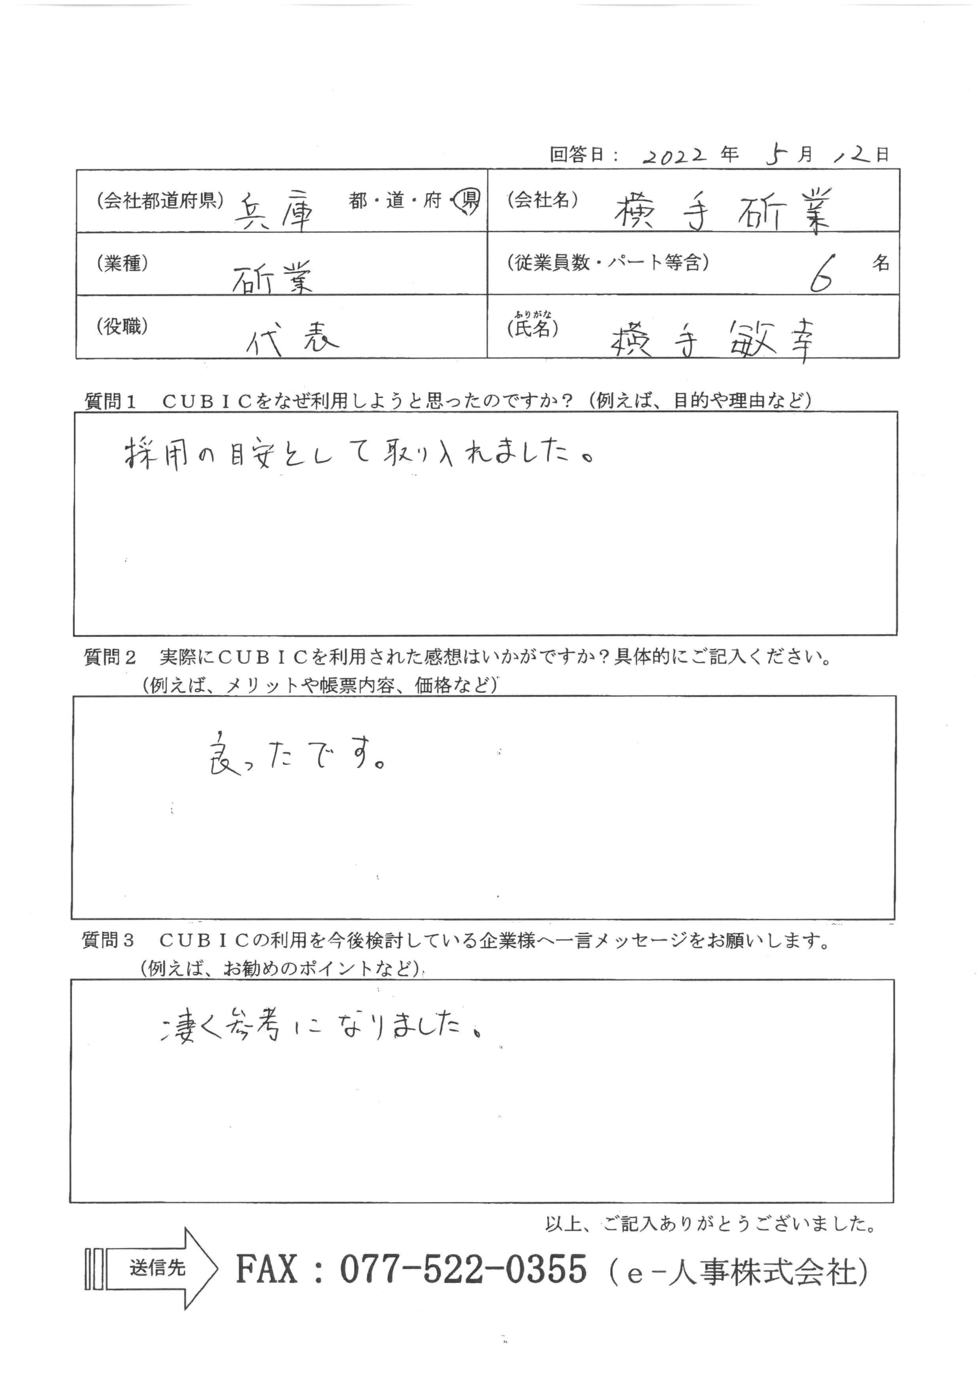 回答日： 2022 年 5 月 12 日
（会社都道府県） 兵庫 都・道・府・県 （会社名） 横手斫業
（業種） 斫業 （従業員数・パート等含） 6 名
（役職） 代表 （氏名） ふりがな 横手敏幸
質問１　ＣＵＢＩＣをなぜ利用しようと思ったのですか？（例えば、目的や理由など）
採用の目安として取り入れました。
質問２　実際にＣＵＢＩＣを利用された感想はいかがですか？具体的にご記入ください。
（例えば、メリットや帳票内容、価格など）
良ったです。
質問３　ＣＵＢＩＣの利用を今後検討している企業様へ一言メッセージをお願いします。
（例えば、お勧めのポイントなど）
凄く参考になりました。
以上、ご記入ありがとうございました。
送信先 FAX：077-522-0355（ｅ－人事株式会社）